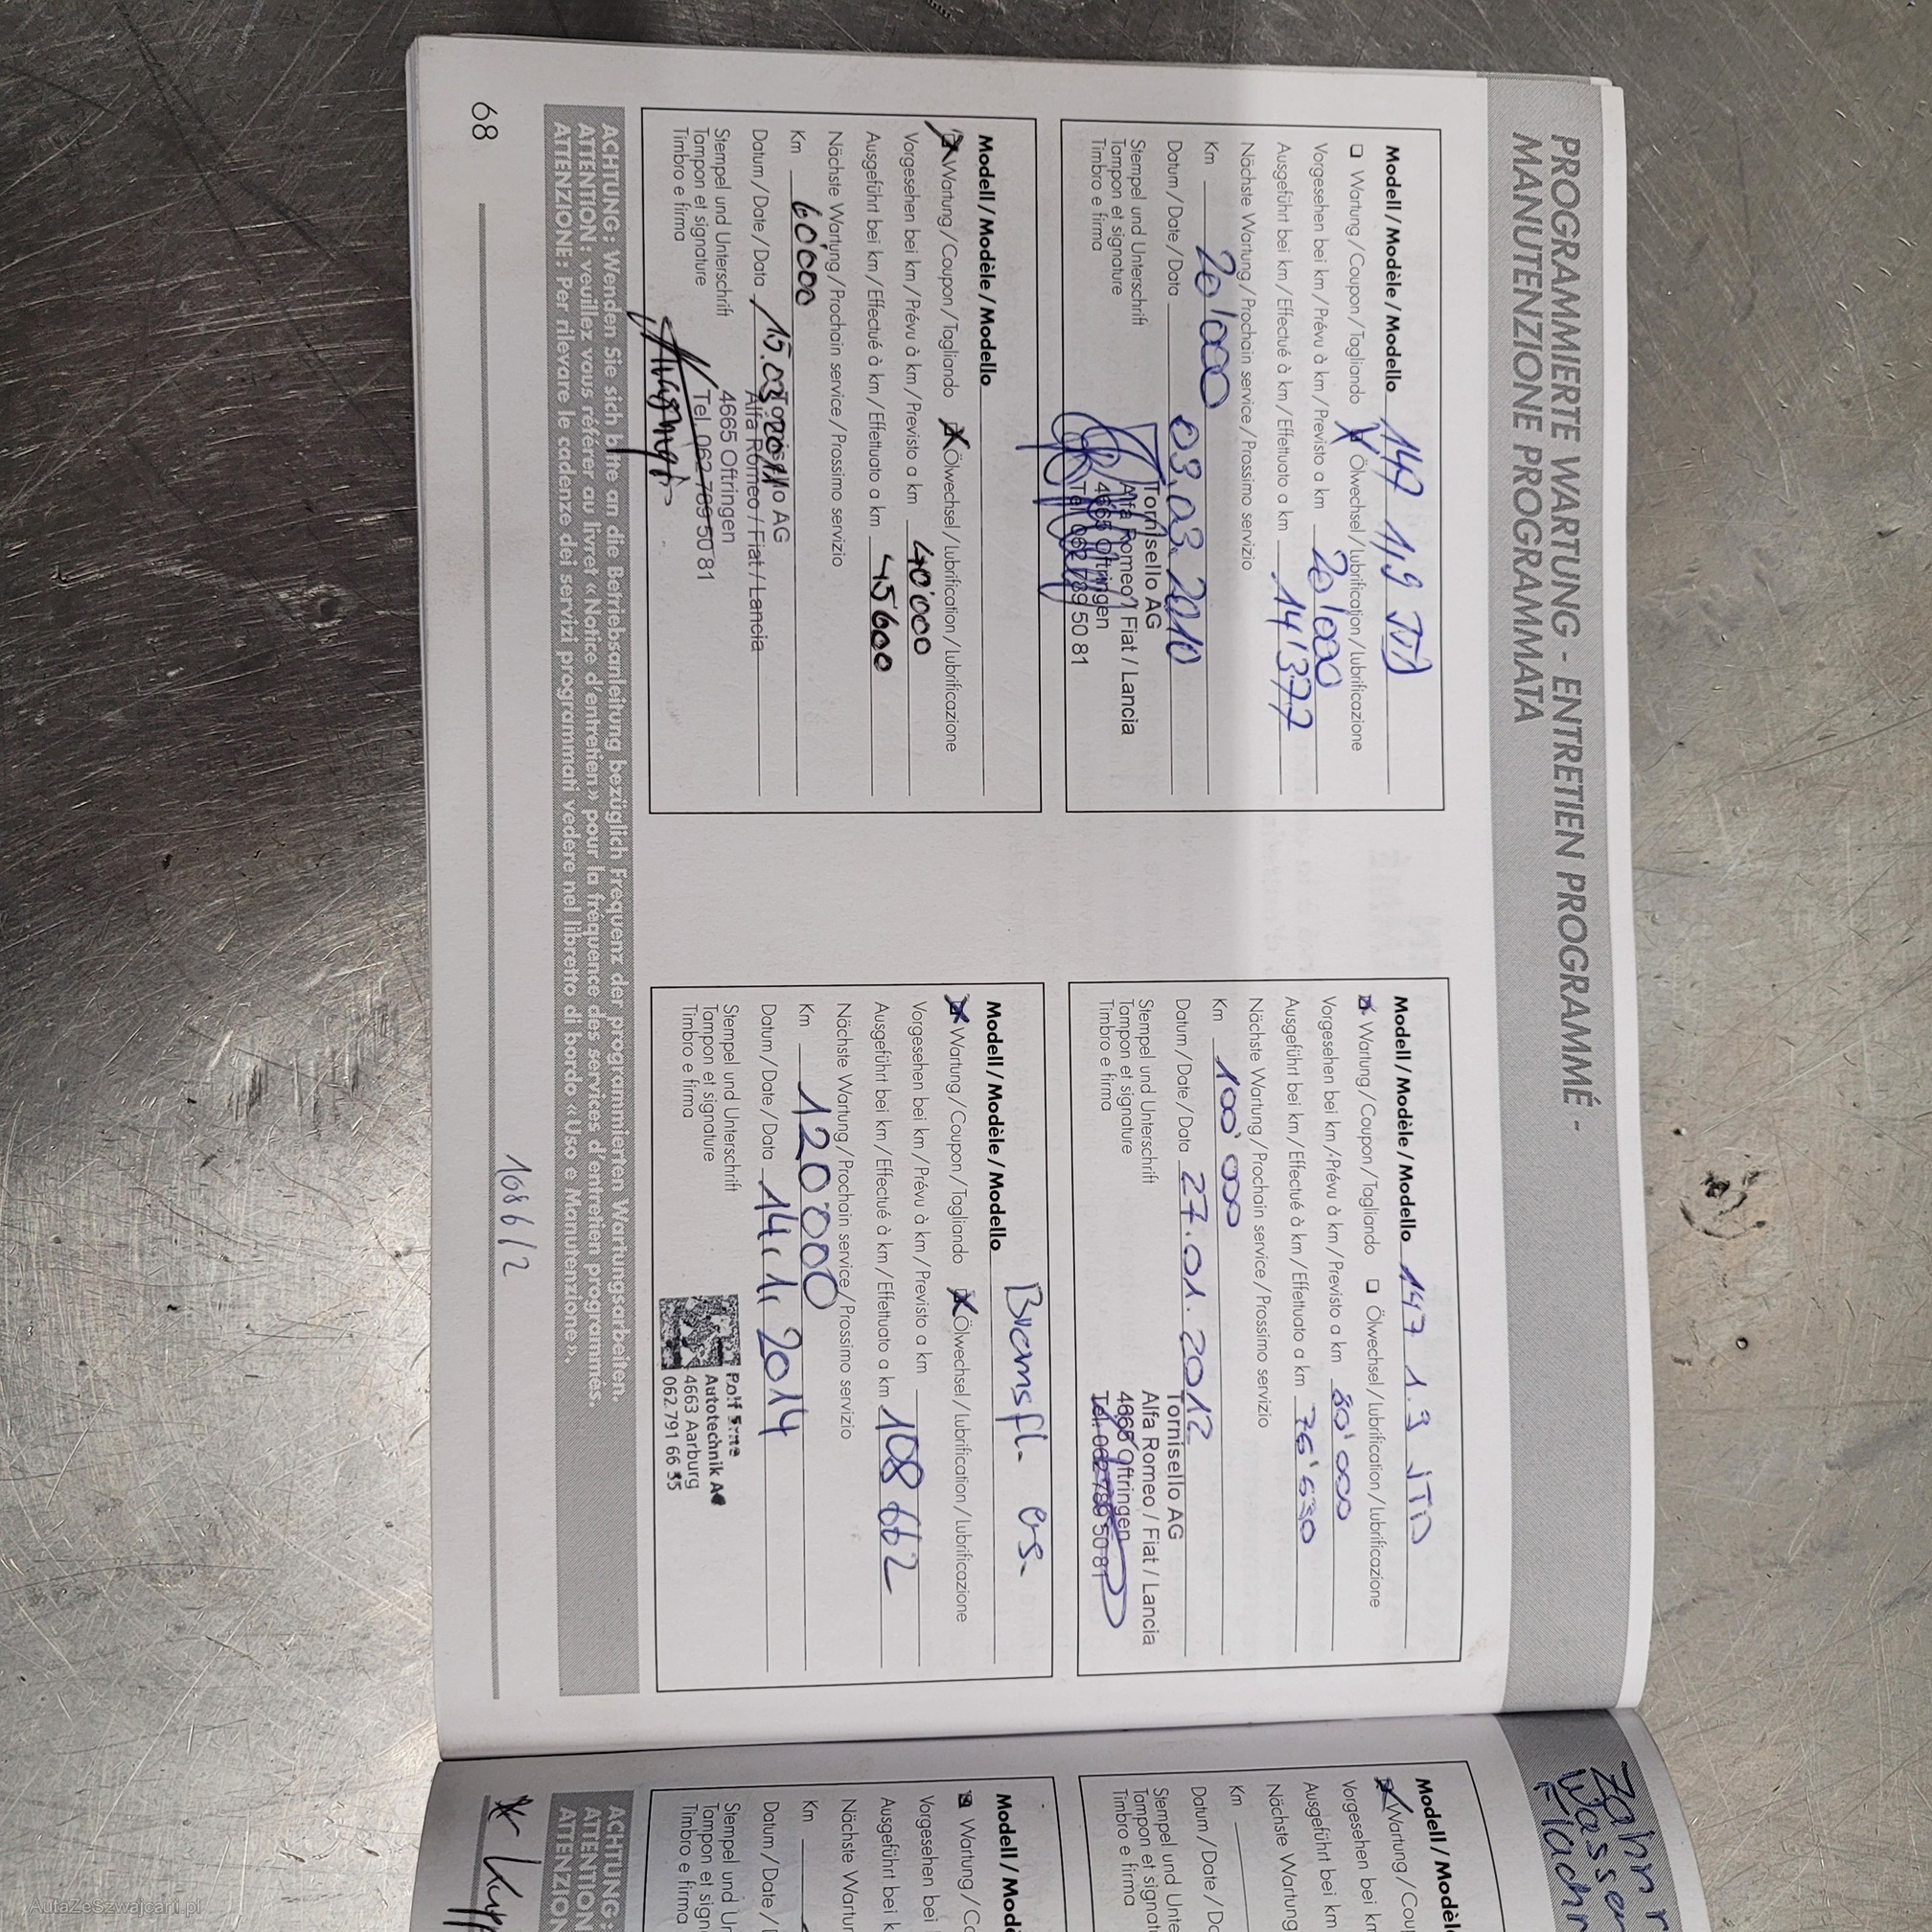 PROGRAMMIERTE WARTUNG - ENTRETIEN PROGRAMMÉ -
MANUTENZIONE PROGRAMMATA
Modell / Modèle / Modello 147 1,9 JTD
Wartung / Coupon / Tagliando X Ölwechsel / lubrification / lubrificazione
Vorgesehen bei km / Prévu à km / Previsto a km 20'000
Ausgeführt bei km / Effectué à km / Effettuato a km 14'377
Nächste Wartung / Prochain service / Prossimo servizio
Km 20'000
Datum / Date / Data 03.03.2010
Stempel und Unterschrift
Tampon et signature
Timbro e firma
Tornisello AG
Alfa Romeo / Fiat / Lancia
4665 Oftringen
Tel. 062 789 50 81
Modell / Modèle / Modello
X Wartung / Coupon / Tagliando X Ölwechsel / lubrification / lubrificazione
Vorgesehen bei km / Prévu à km / Previsto a km 40'000
Ausgeführt bei km / Effectué à km / Effettuato a km 45'600
Nächste Wartung / Prochain service / Prossimo servizio
Km 60'000
Datum / Date / Data 15.03.2011
Stempel und Unterschrift
Tampon et signature
Timbro e firma
Tornisello AG
Alfa Romeo / Fiat / Lancia
4665 Oftringen
Tel. 062 789 50 81
Modell / Modèle / Modello 147 1.9 JTD
X Wartung / Coupon / Tagliando Ölwechsel / lubrification / lubrificazione
Vorgesehen bei km / Prévu à km / Previsto a km 80'000
Ausgeführt bei km / Effectué à km / Effettuato a km 76'530
Nächste Wartung / Prochain service / Prossimo servizio
Km 100'000
Datum / Date / Data 27.01.2012
Stempel und Unterschrift
Tampon et signature
Timbro e firma
Tornisello AG
Alfa Romeo / Fiat / Lancia
4665 Oftringen
Tel. 062 789 50 81
Bremsfl. ers.
Modell / Modèle / Modello
X Wartung / Coupon / Tagliando X Ölwechsel / lubrification / lubrificazione
Vorgesehen bei km / Prévu à km / Previsto a km
Ausgeführt bei km / Effectué à km / Effettuato a km 108 662
Nächste Wartung / Prochain service / Prossimo servizio
Km 120'000
Datum / Date / Data 14.1. 2014
Stempel und Unterschrift
Tampon et signature
Timbro e firma
Autotechnik AG
4663 Aarburg
062 791 66 55
ACHTUNG: Wenden Sie sich bitte an die Betriebsanleitung bezüglich Frequenz der programmierten Wartungsarbeiten.
ATTENTION: veuillez vous référer au livret «Notice d'entretien» pour la fréquence des services d'entretien programmés.
ATTENZIONE: Per rilevare le cadenze dei servizi programmati vedere nel libretto di bordo «Uso e Manutenzione».
68
1086/2
Modell / Modèl
X Wartung / Cou
Vorgesehen bei k
Ausgeführt bei km
Nächste Wartung
Km
Datum / Date / Da
Stempel und Unte
Tampon et signat
Timbro e firma
Modell / Modè
Wartung / Co
Vorgesehen bei
Ausgeführt bei k
Nächste Wartu
Km
Datum / Date /
Stempel und Un
Tampon et sign
Timbro e firma
ACHTUNG:
ATTENTION
ATTENZION
AutaZeSzwajcarii.pl